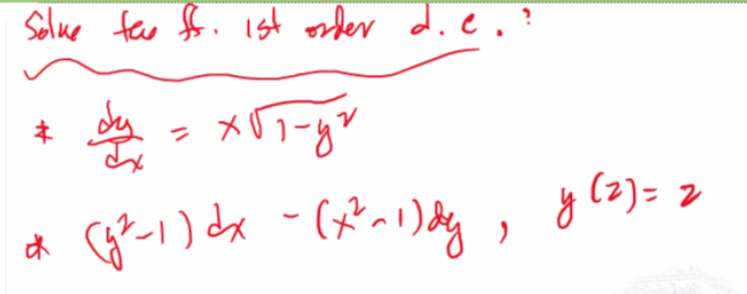 Solve the ff. 1st order d.e.?
* dy/dx = x√1-y²
* (y²-1) dx - (x²-1) dy , y(2) = 2